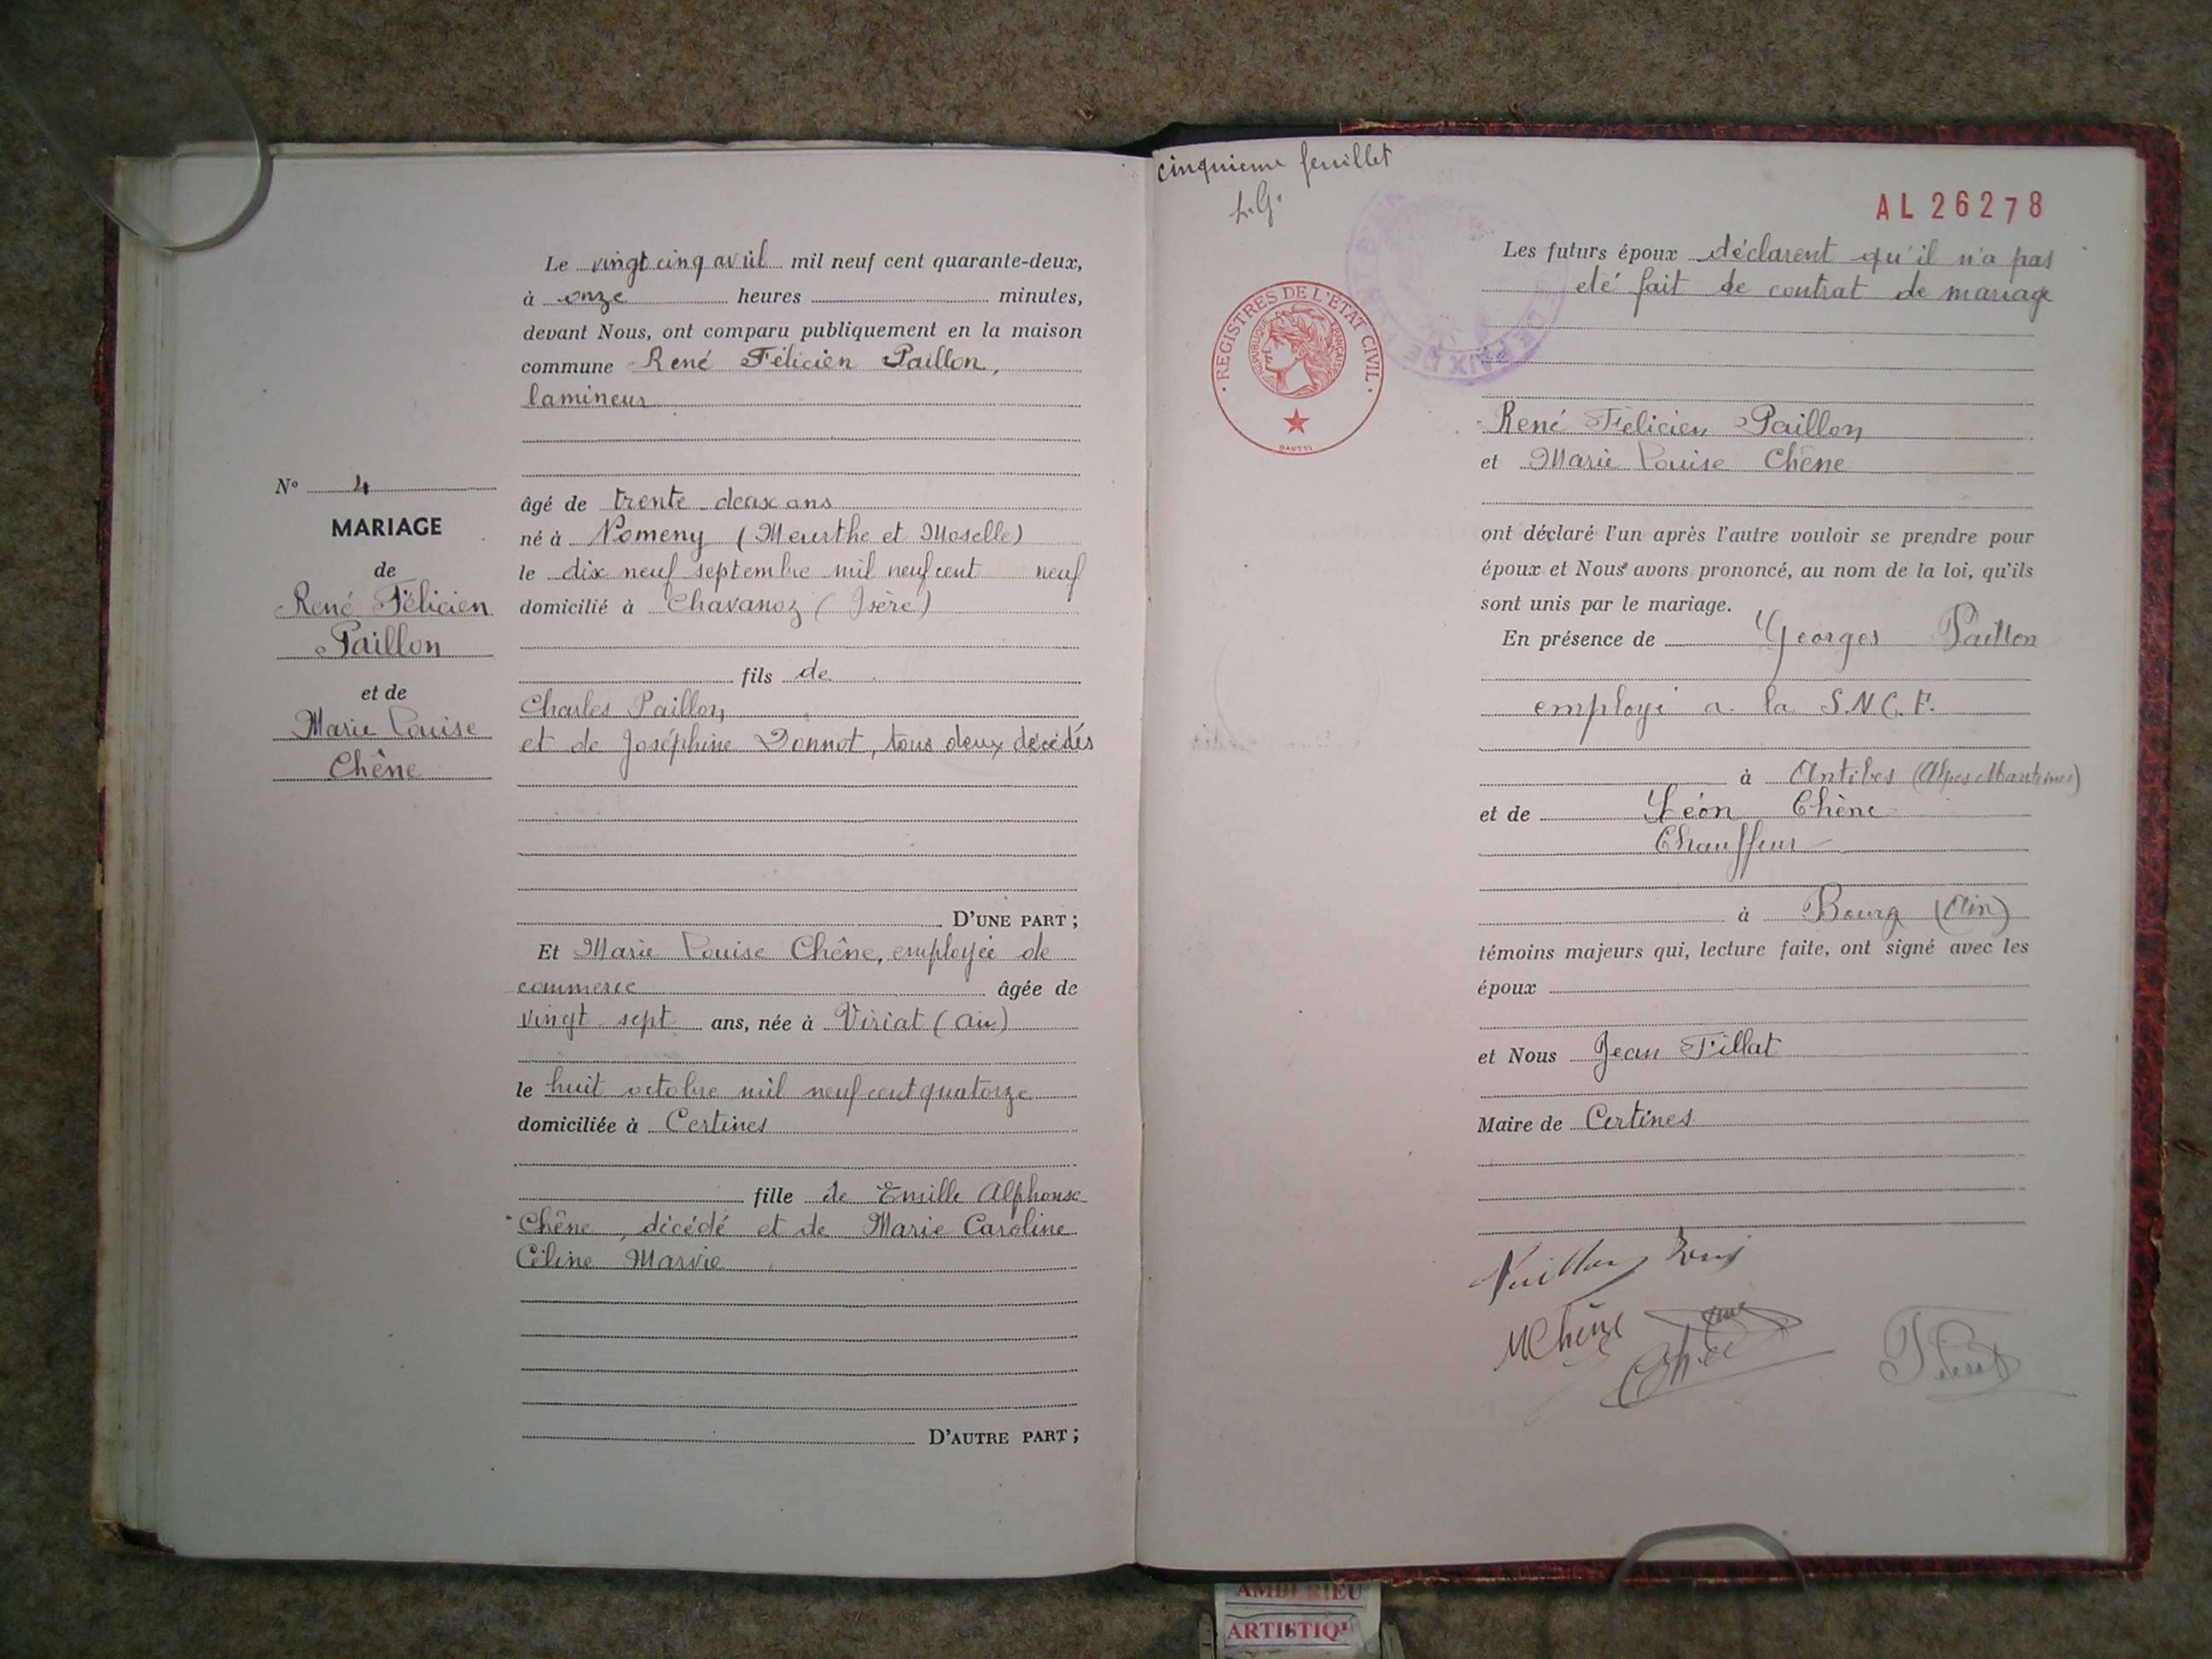 Le vingt cinq avril mil neuf cent quarante-deux,
à onze heures minutes,
devant Nous, ont comparu publiquement en la maison
commune René Félicien Paillon,
lamineur
âgé de trente deux ans
né à Nomeny (Meurthe et Moselle)
le dix neuf septembre mil neuf cent neuf
domicilié à Chavanoz (Isère)
fils de
Charles Paillon
et de Joséphine Donnot, tous deux décédés
D'UNE PART ;
Et Marie Louise Chêne, employée de
commerce âgée de
vingt sept ans, née à Viriat (Ain)
le huit octobre mil neuf cent quatorze
domiciliée à Certines
fille de Emille Alphonse
Chêne, décédé et de Marie Caroline
Céline Marvie
D'AUTRE PART ;
N° 4
MARIAGE
de
René Félicien
Paillon
et de
Marie Louise
Chêne
cinquieme feuillet
AL 26278
REGISTRES DE L'ETAT CIVIL
REPUBLIQUE FRANÇAISE
Les futurs époux déclarent qu'il n'a pas
eté fait de contrat de mariage
René Félicien Paillon
et Marie Louise Chêne
ont déclaré l'un après l'autre vouloir se prendre pour
époux et Nous avons prononcé, au nom de la loi, qu'ils
sont unis par le mariage.
En présence de Georges Paillon
employé a la S.N.C.F.
à Antibes (Alpes Maritimes)
et de Léon Chêne
Chauffeur
à Bourg (Ain)
témoins majeurs qui, lecture faite, ont signé avec les
époux
et Nous Jean Tillat
Maire de Certines
MChêne
AMBERIEU
ARTISTIQ